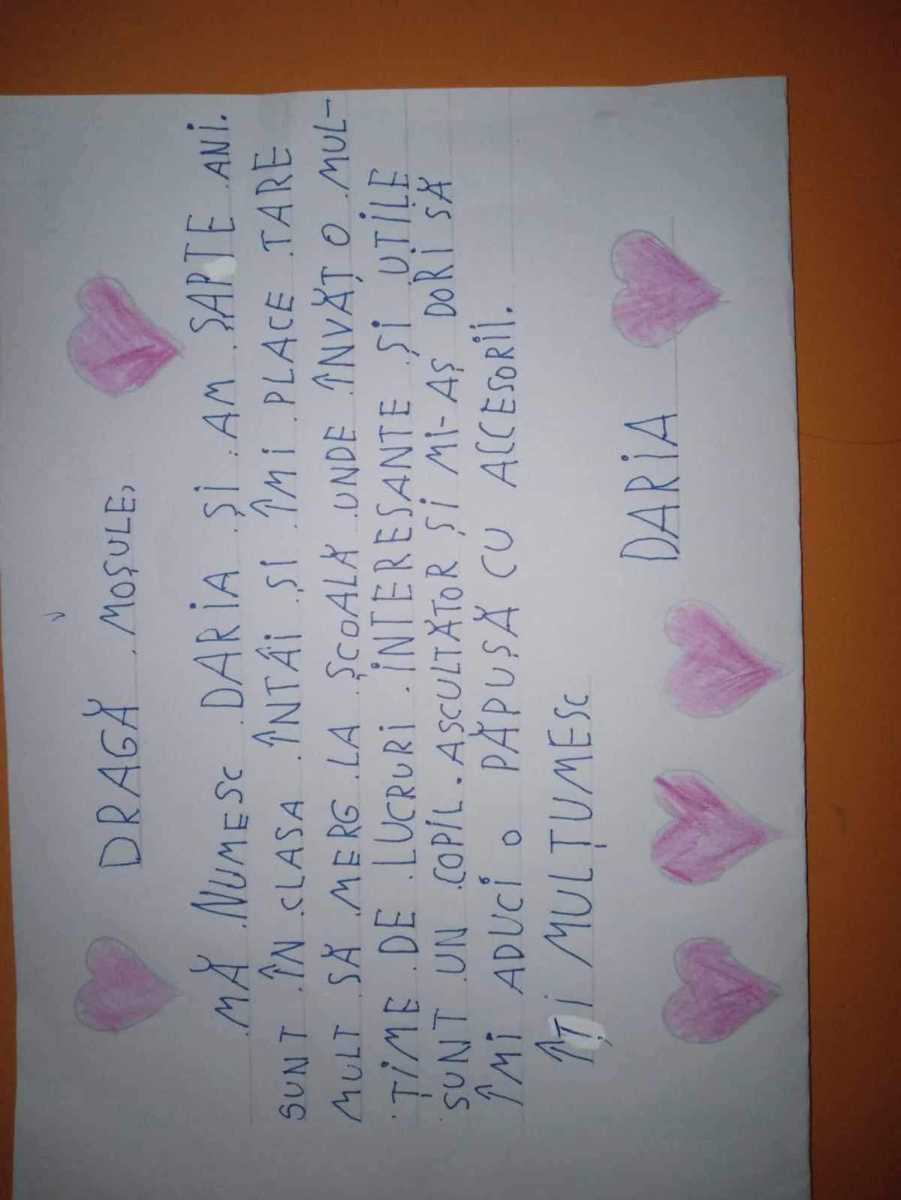 DRAGĂ MOȘULE,
MĂ NUMESC DARIA ȘI AM ȘAPTE ANI.
SUNT ÎN CLASA ÎNTÂI ȘI ÎMI PLACE TARE
MULT SĂ MERG LA ȘCOALĂ UNDE ÎNVĂȚ O MUL-
ȚIME DE LUCRURI INTERESANTE ȘI UTILE
SUNT UN COPIL ASCULTĂTOR ȘI MI-AȘ DORI SĂ
ÎMI ADUCI O PĂPUȘĂ CU ACCESORII.
ÎȚI MULȚUMESC
DARIA